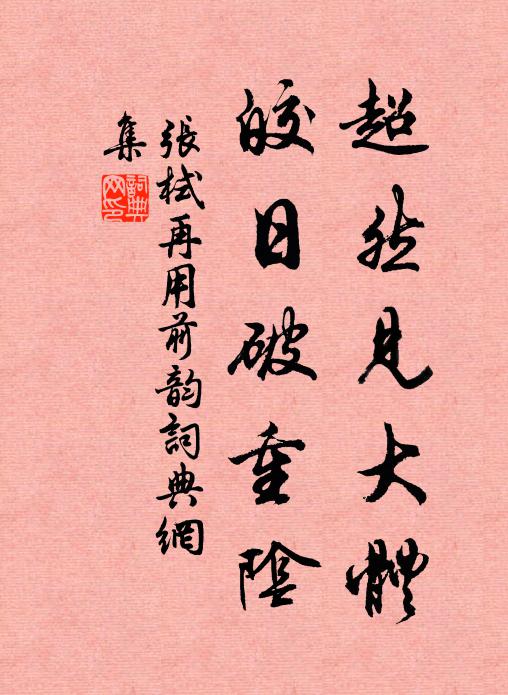 超然見大體
皎日破重陰
張栻再用前韵詞典網
集
詞典
网印